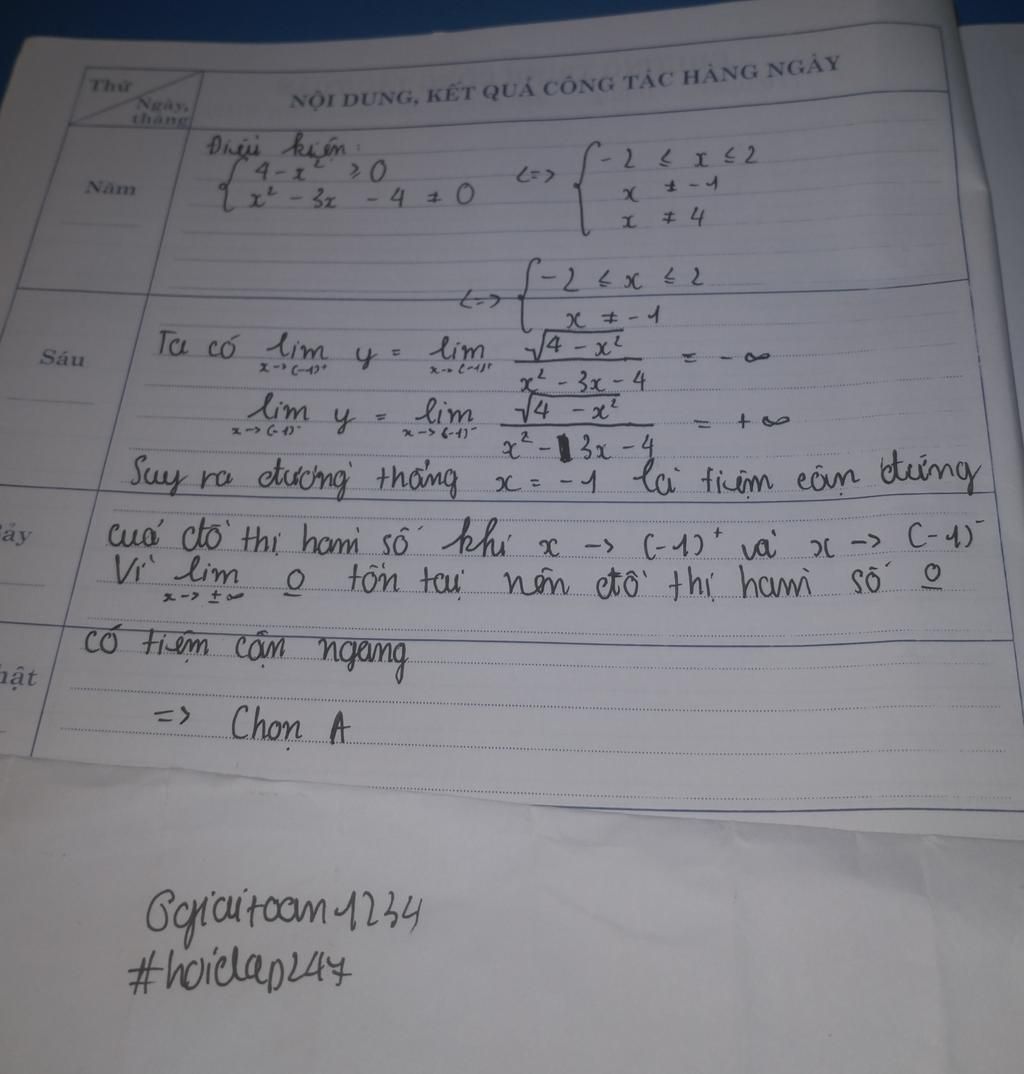 Thứ
Ngày, tháng
NỘI DUNG, KẾT QUẢ CÔNG TÁC HÀNG NGÀY
Năm
Điều kiện:
{ 4 - x² ≥ 0 <=> { -2 ≤ x ≤ 2
x² - 3x - 4 ≠ 0 x ≠ -1
x ≠ 4
<=> { -2 ≤ x ≤ 2
x ≠ -1
Sáu
Ta có lim x→(-1)⁺ y = lim x→(-1)⁺ √(4 - x²) / (x² - 3x - 4) = -∞
lim x→(-1)⁻ y = lim x→(-1)⁻ √(4 - x²) / (x² - 3x - 4) = +∞
Suy ra đường thẳng x = -1 là tiệm cận đứng
ảy
cuả đồ thị hàm số khi x -> (-1)⁺ và x -> (-1)⁻
Vì lim x→±∞ o̲ tồn tại nên đồ thị hàm số o̲
có tiệm cận ngang
hật
=> Chọn A
@giaitoan1234
#hoidap247